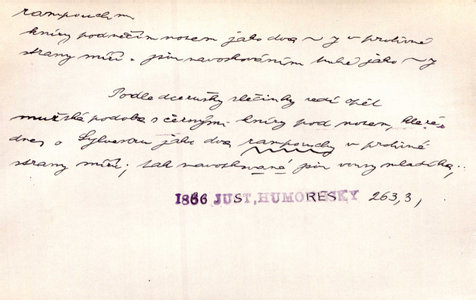 rampouchy
kníry pod něčím nosem jako dva ~y v protivné
strany míří. jsou navoskováním tuhé jako ~y
Podle dcerušky slečinky sedí opět
mužská podoba s černými kníry pod nosem, které
dnes o Sylvestru jako dva rampouchy v protivné
strany míří; tak navoskované jsou vousy mladíka..
1866 JUST, HUMORESKY 263,3,